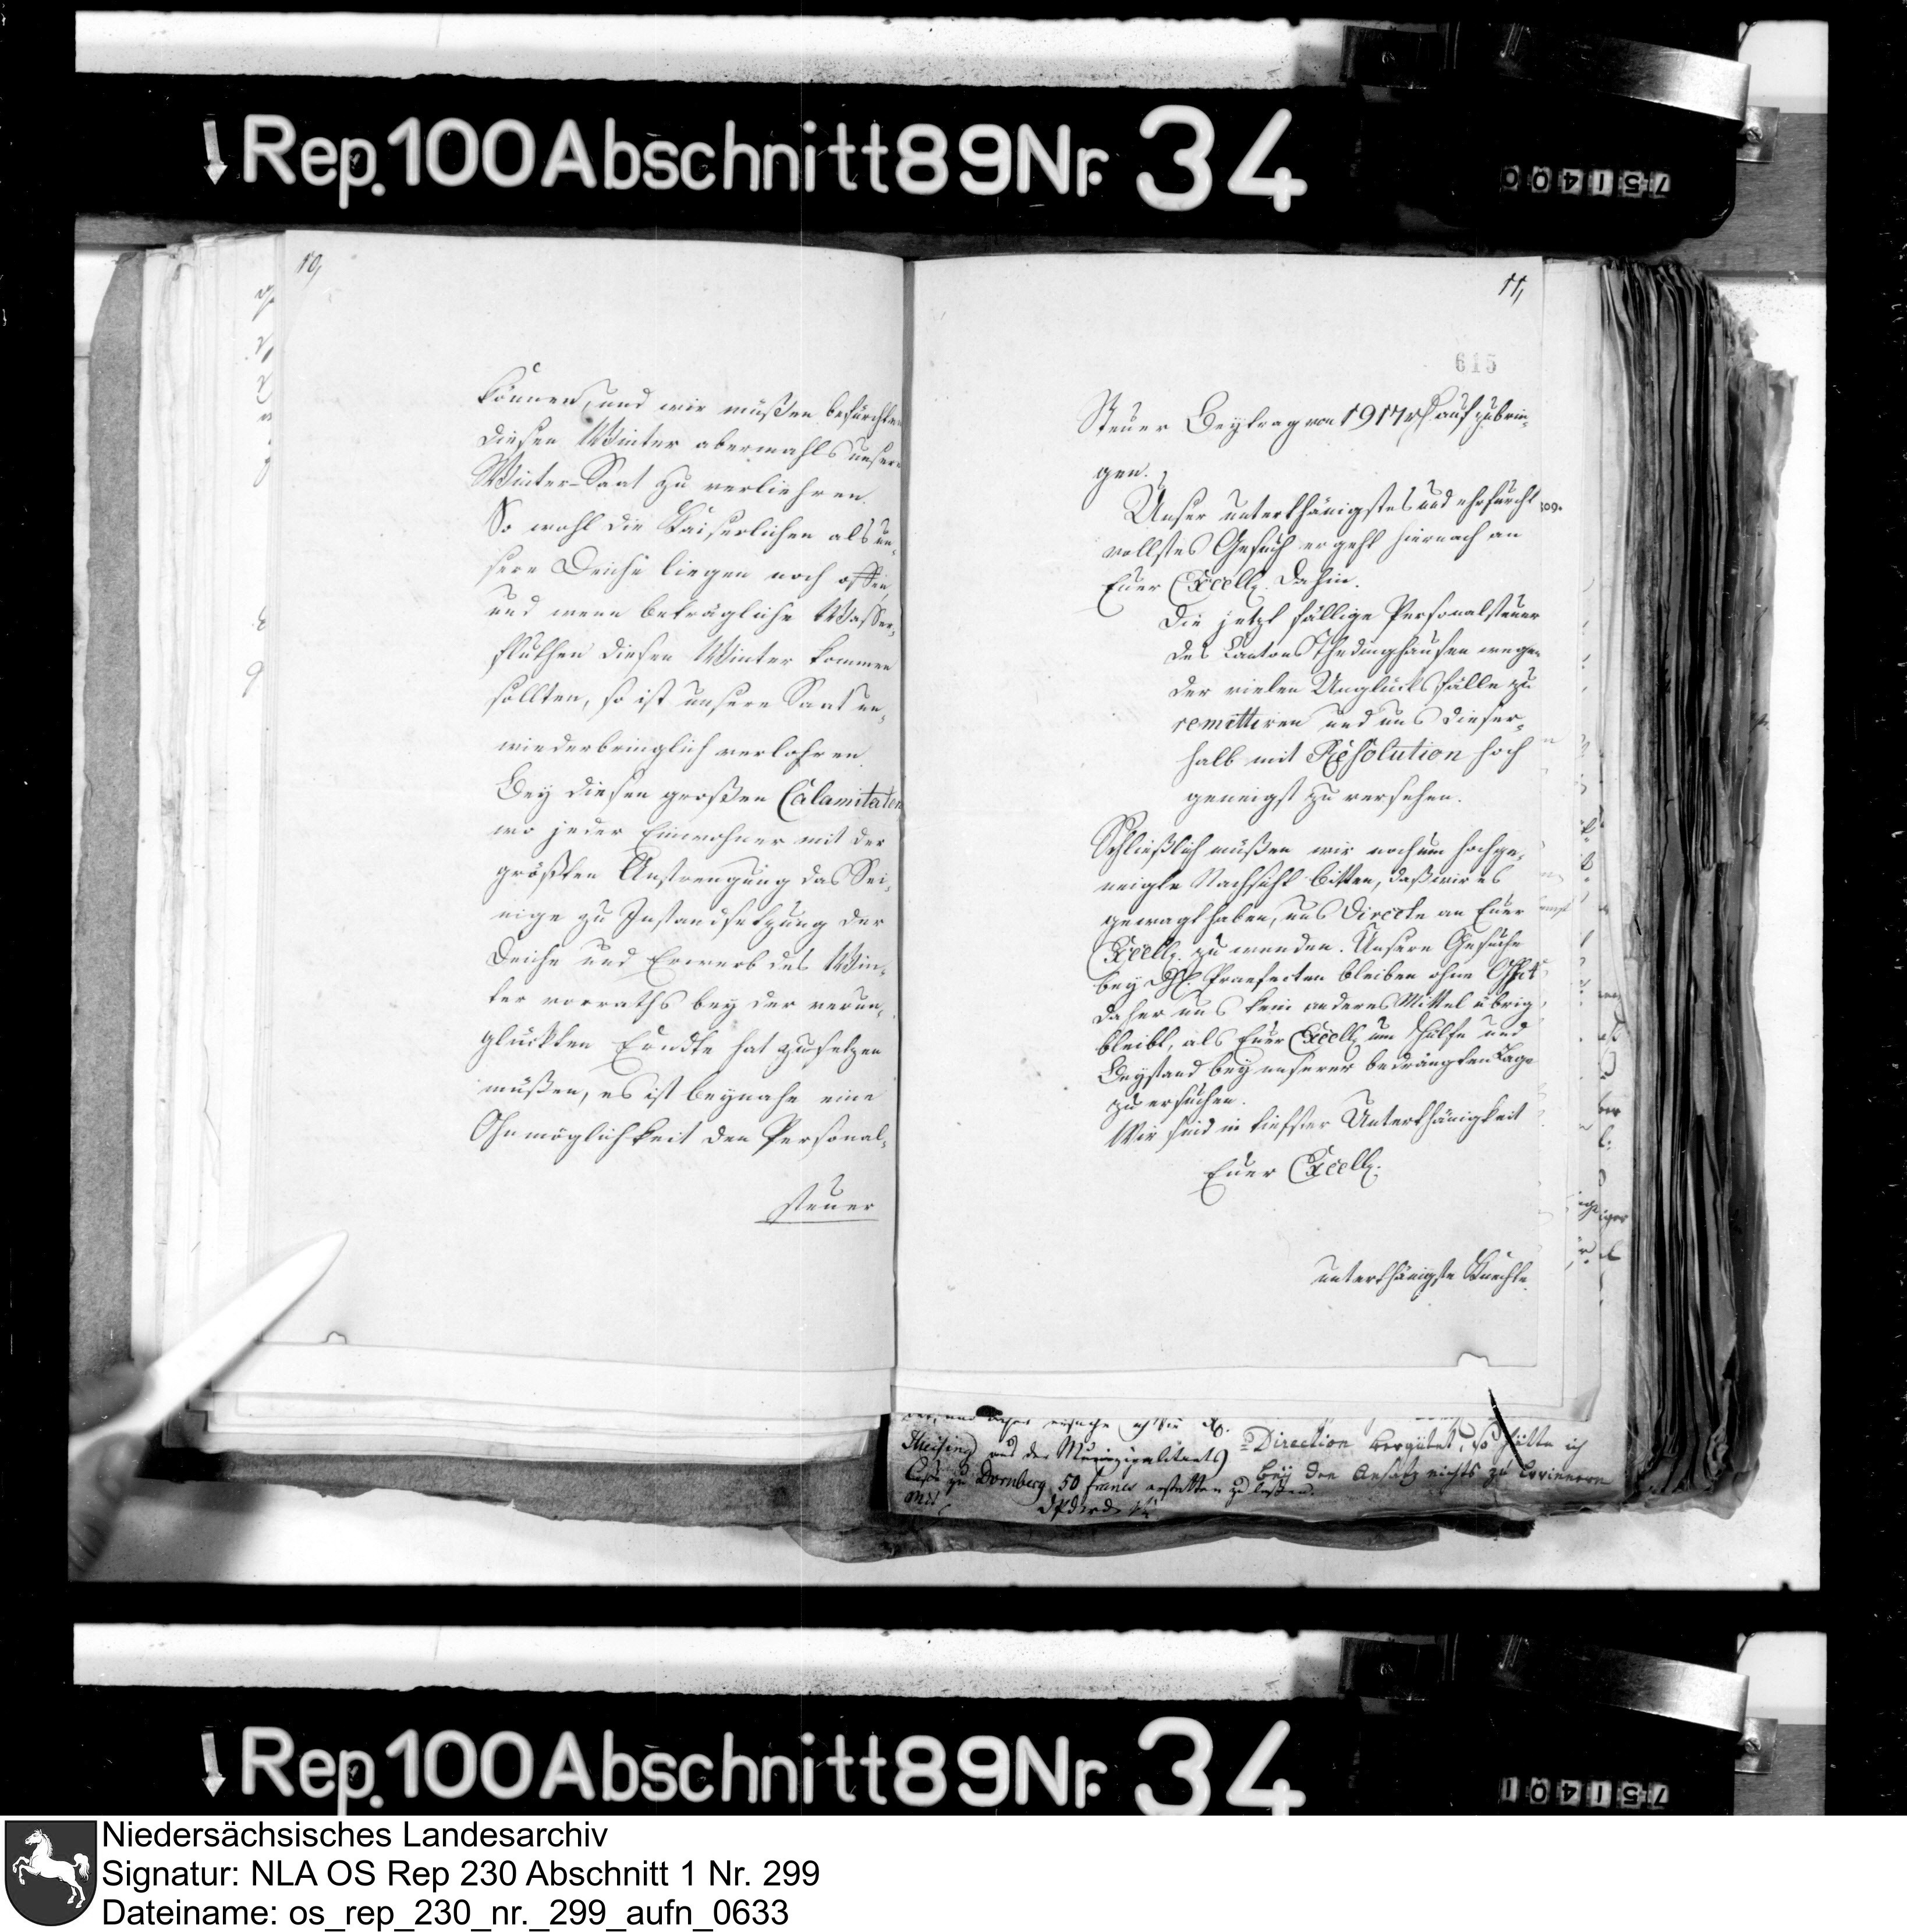 Rep.100 Abschnitt 89 Nr. 34
751400
10,
können, und wir müßen befürchten
diesen Winter abermahls unsere
Winter-Saat zu verliehren.
So wohl die Kaiserlichen als un-
sere Deiche liegen noch offen,
und wenn beträgliche Wasser-
fluthen diesen Winter kommen
sollten, so ist unsere Saat un-
wiederbringlich verlohren.
Bey diesen großen Calamitaten
wo jeder Einwohner mit der
größten Anstrengung das Sei-
nige zu Instandsetzung der
Deiche und Erwerb des Win-
ter vorraths bey der verun-
glückten Erndte hat zusetzen
müßen, es ist beynahe eine
Ohnmöglichkeit den Personal-
steuer
11,
615
Steuer Beytrag von 1917 aufzubrin-
gen.
Unser unterthänigstes und ehrfurcht
vollstes Gesuch ergeht hiernach an
Euer Excell. dahin.
Die jetzt fällige Personalsteuer
des Cantons Thedinghausen wegen
der vielen Unglücksfälle zu
remittiren und uns dieser-
halb mit Resolution hoch
geneigst zu versehen.
Schließlich müßen wir noch um hochge-
neigte Nachsicht bitten, daß wir es
gewagt haben, uns directe an Euer
Excell. zu wenden. Unsere Gesuche
bey H. Praefecten bleiben ohne Effect
daher uns kein anderes Mittel übrig
bleibt, als Euer Excell um Hülfe und
Beystand bey unserer bedrängten Lage
zu ersuchen.
Wir sind in tiefster Unterthänigkeit
Euer Excell.
unterthänigste Knechte.
aus der Municipalitaets
zu Dornberg 50 francs erstatten zu laßen.
Direction vergütet, so hätte ich
bey den Ansatz nichts zu erinnern
Rep.100 Abschnitt 89 Nr. 34
751401
Niedersächsisches Landesarchiv
Signatur: NLA OS Rep 230 Abschnitt 1 Nr. 299
Dateiname: os_rep_230_nr._299_aufn_0633